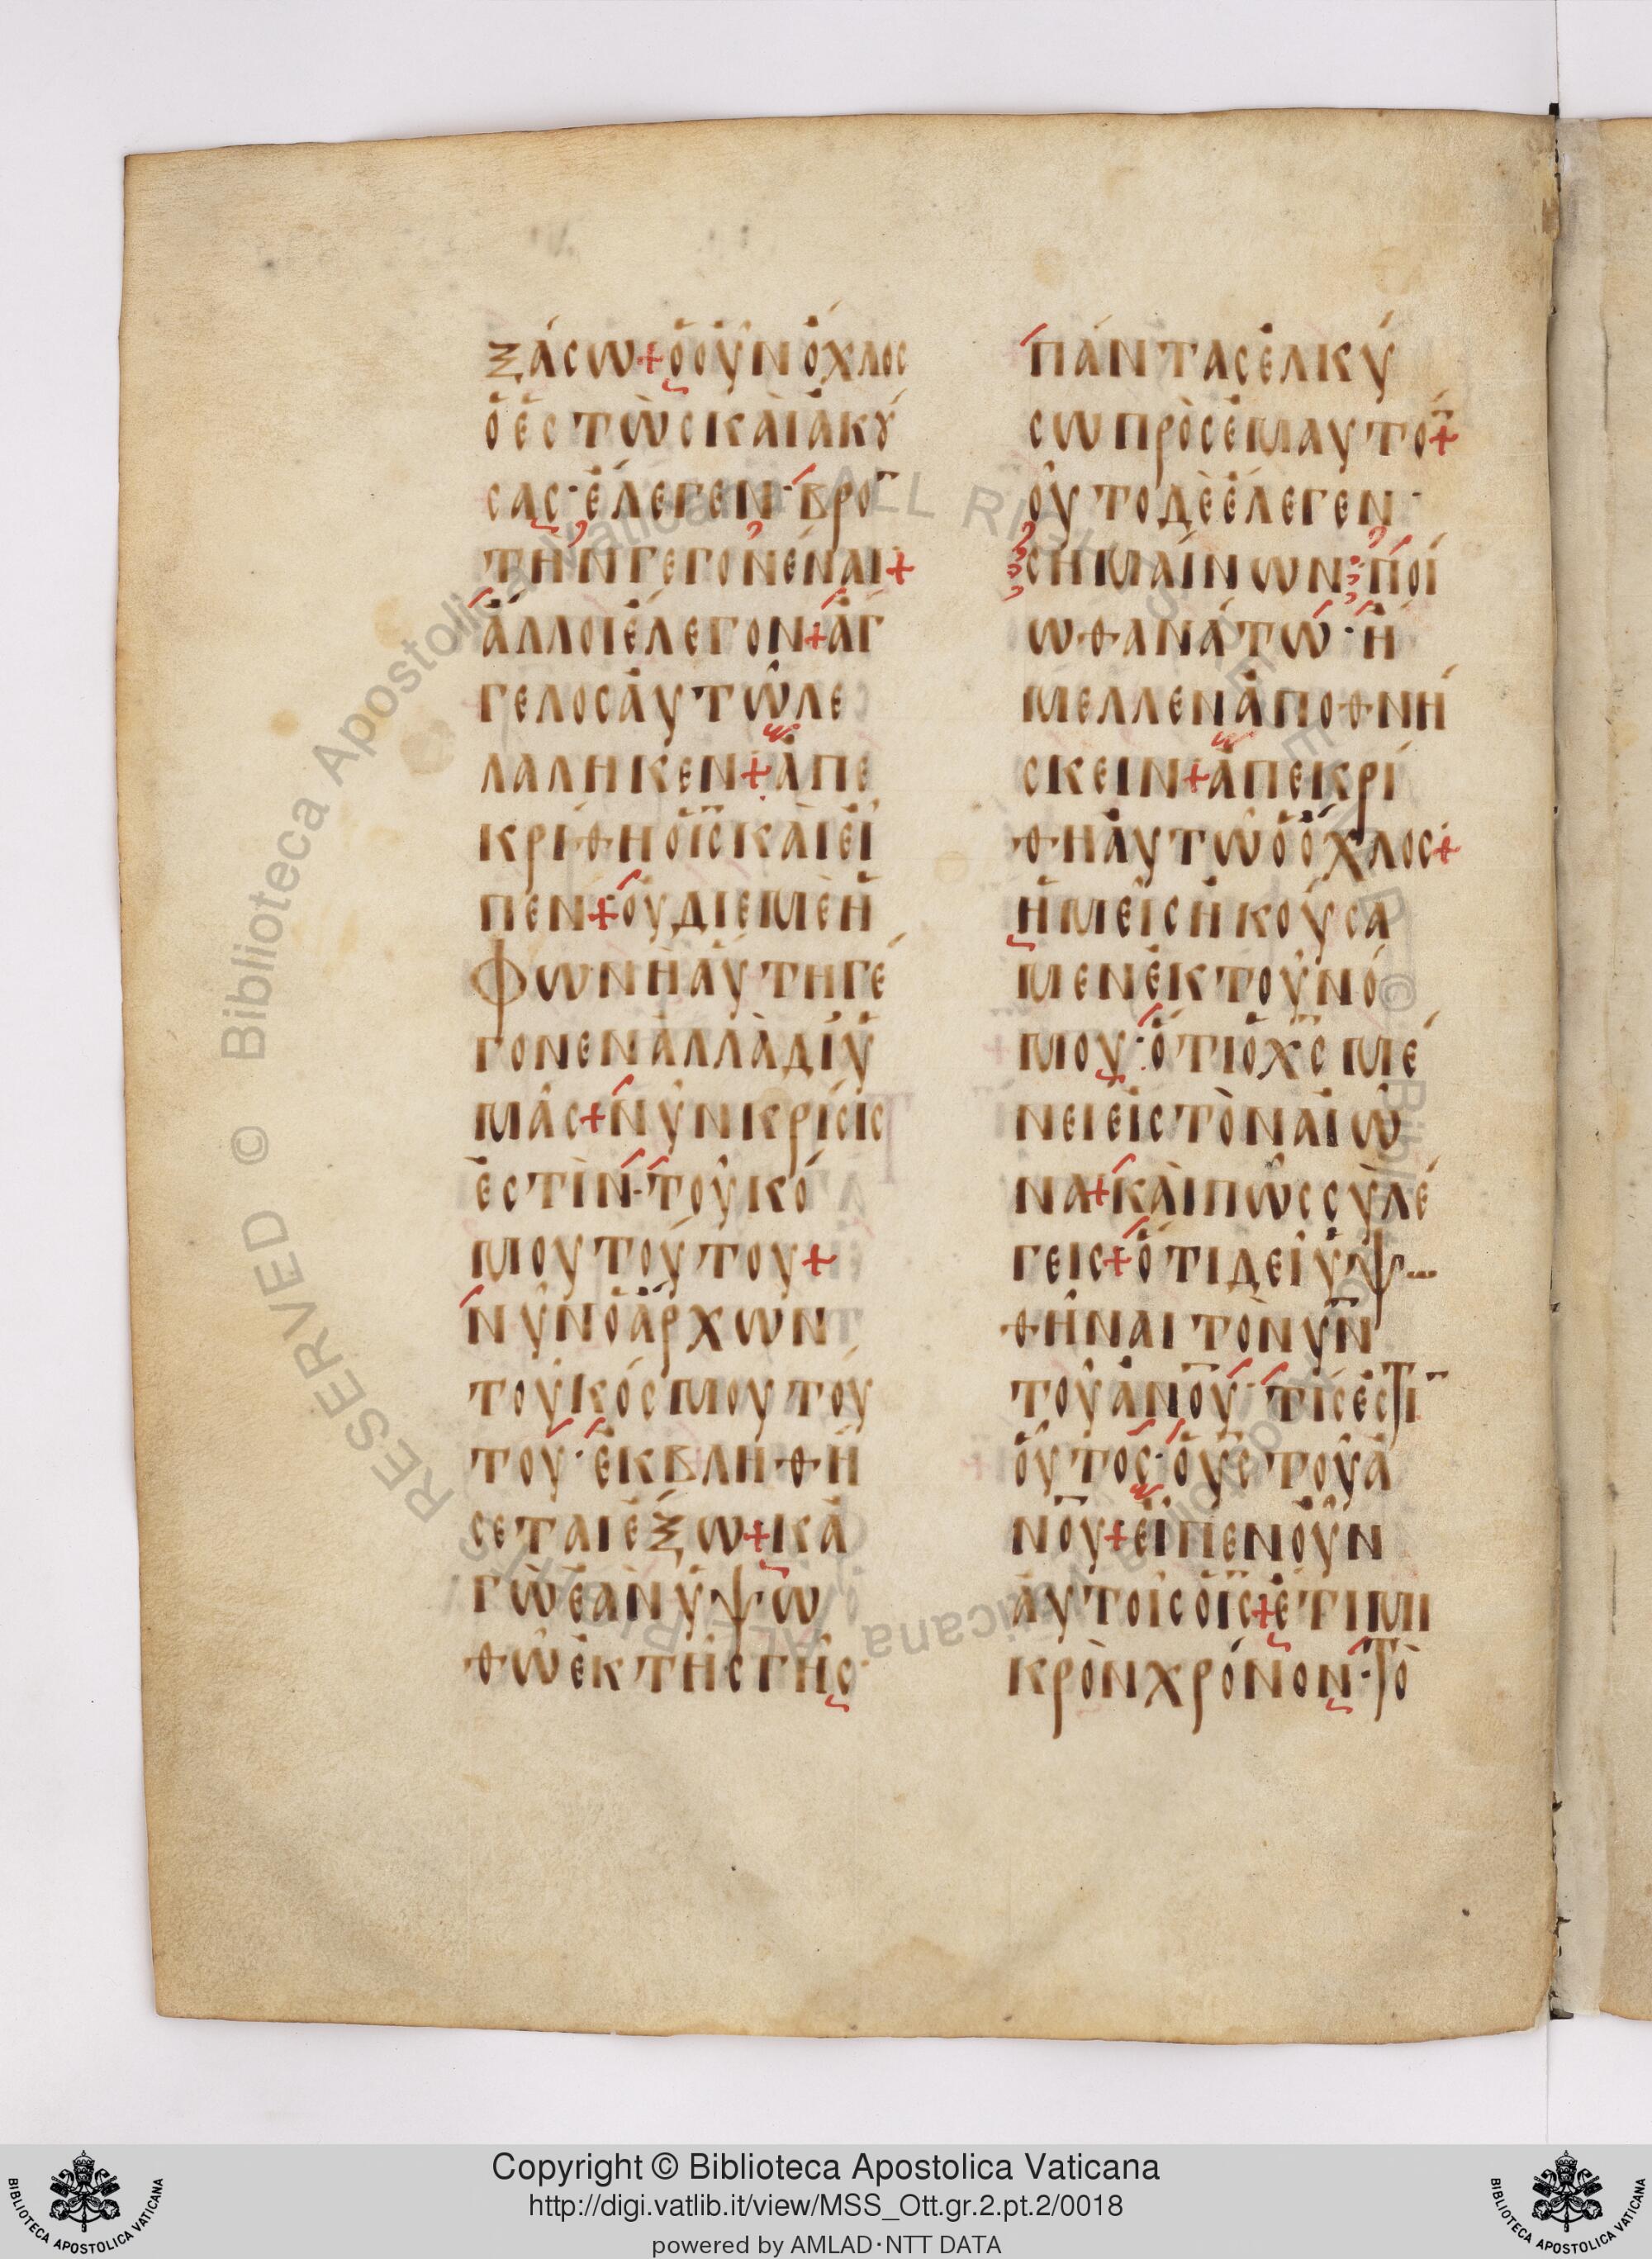 ξάσω+ὁοὖνὄχλος
ὁἑστὼςκαὶἀκού
σας·ἔλεγεν·βρο̅
τὴνγεγονέναι+
ἄλλοιἔλεγον+ἄγ
γελοςἀυτῶλε
λάληκεν+ἀπε
κρίθηὁι̅ς̅καὶεἶ
πεν+οὐδιεμὲἡ
φωνὴἁύτηγέ
γονενἀλλὰδιὑ
μᾶς+νῦνκρίσις
ἐστὶν·τοῦκό
μουτούτου+
νῦνὁἄρχων
τοῦκόσμουτού
του·ἐκβληθή
σεταιἔξω+κἀ
γὼἐὰνὑψω
θῶἐκτῆςγῆς·
πάνταςἑλκύ
σωπρὸςἐμαυτο̅+
οὗτοδὲἔλεγεν·
σημαίνων·ποί
ωθανάτω·ἤ
μελλενἀποθνή
σκειν+ἀπεκρί
θηἀυτῶὁὄχλος+
ἡμεῖςἠκούσα
μενἐκτοῦνό
μου·ὅτιὁχ̅ς̅μέ
νειεἰςτὸναἰῶ
να+καὶπῶςσὺλέ
γεις+ὅτιδεῖὑψω
θῆναιτὸνυ̅ν̅
τοῦἀν̅ο̅υ̅·τίςἐστι̅
οὗτος·ὁυ̅ς̅τοῦἀ
ν̅ο̅υ̅+εἶπενοὖν
ἀυτοῖςὁι̅ς̅+ἔτιμι
κρὸνχρόνον·τὸ
Copyright © Biblioteca Apostolica Vaticana
http://digi.vatlib.it/view/MSS_Ott.gr.2.pt.2/0018
powered by AMLAD·NTT DATA
BIBLIOTECA APOSTOLICA VATICANA
BIBLIOTECA APOSTOLICA VATICANA
© Biblioteca Apostolica Vaticana ALL RIGHTS RESERVED